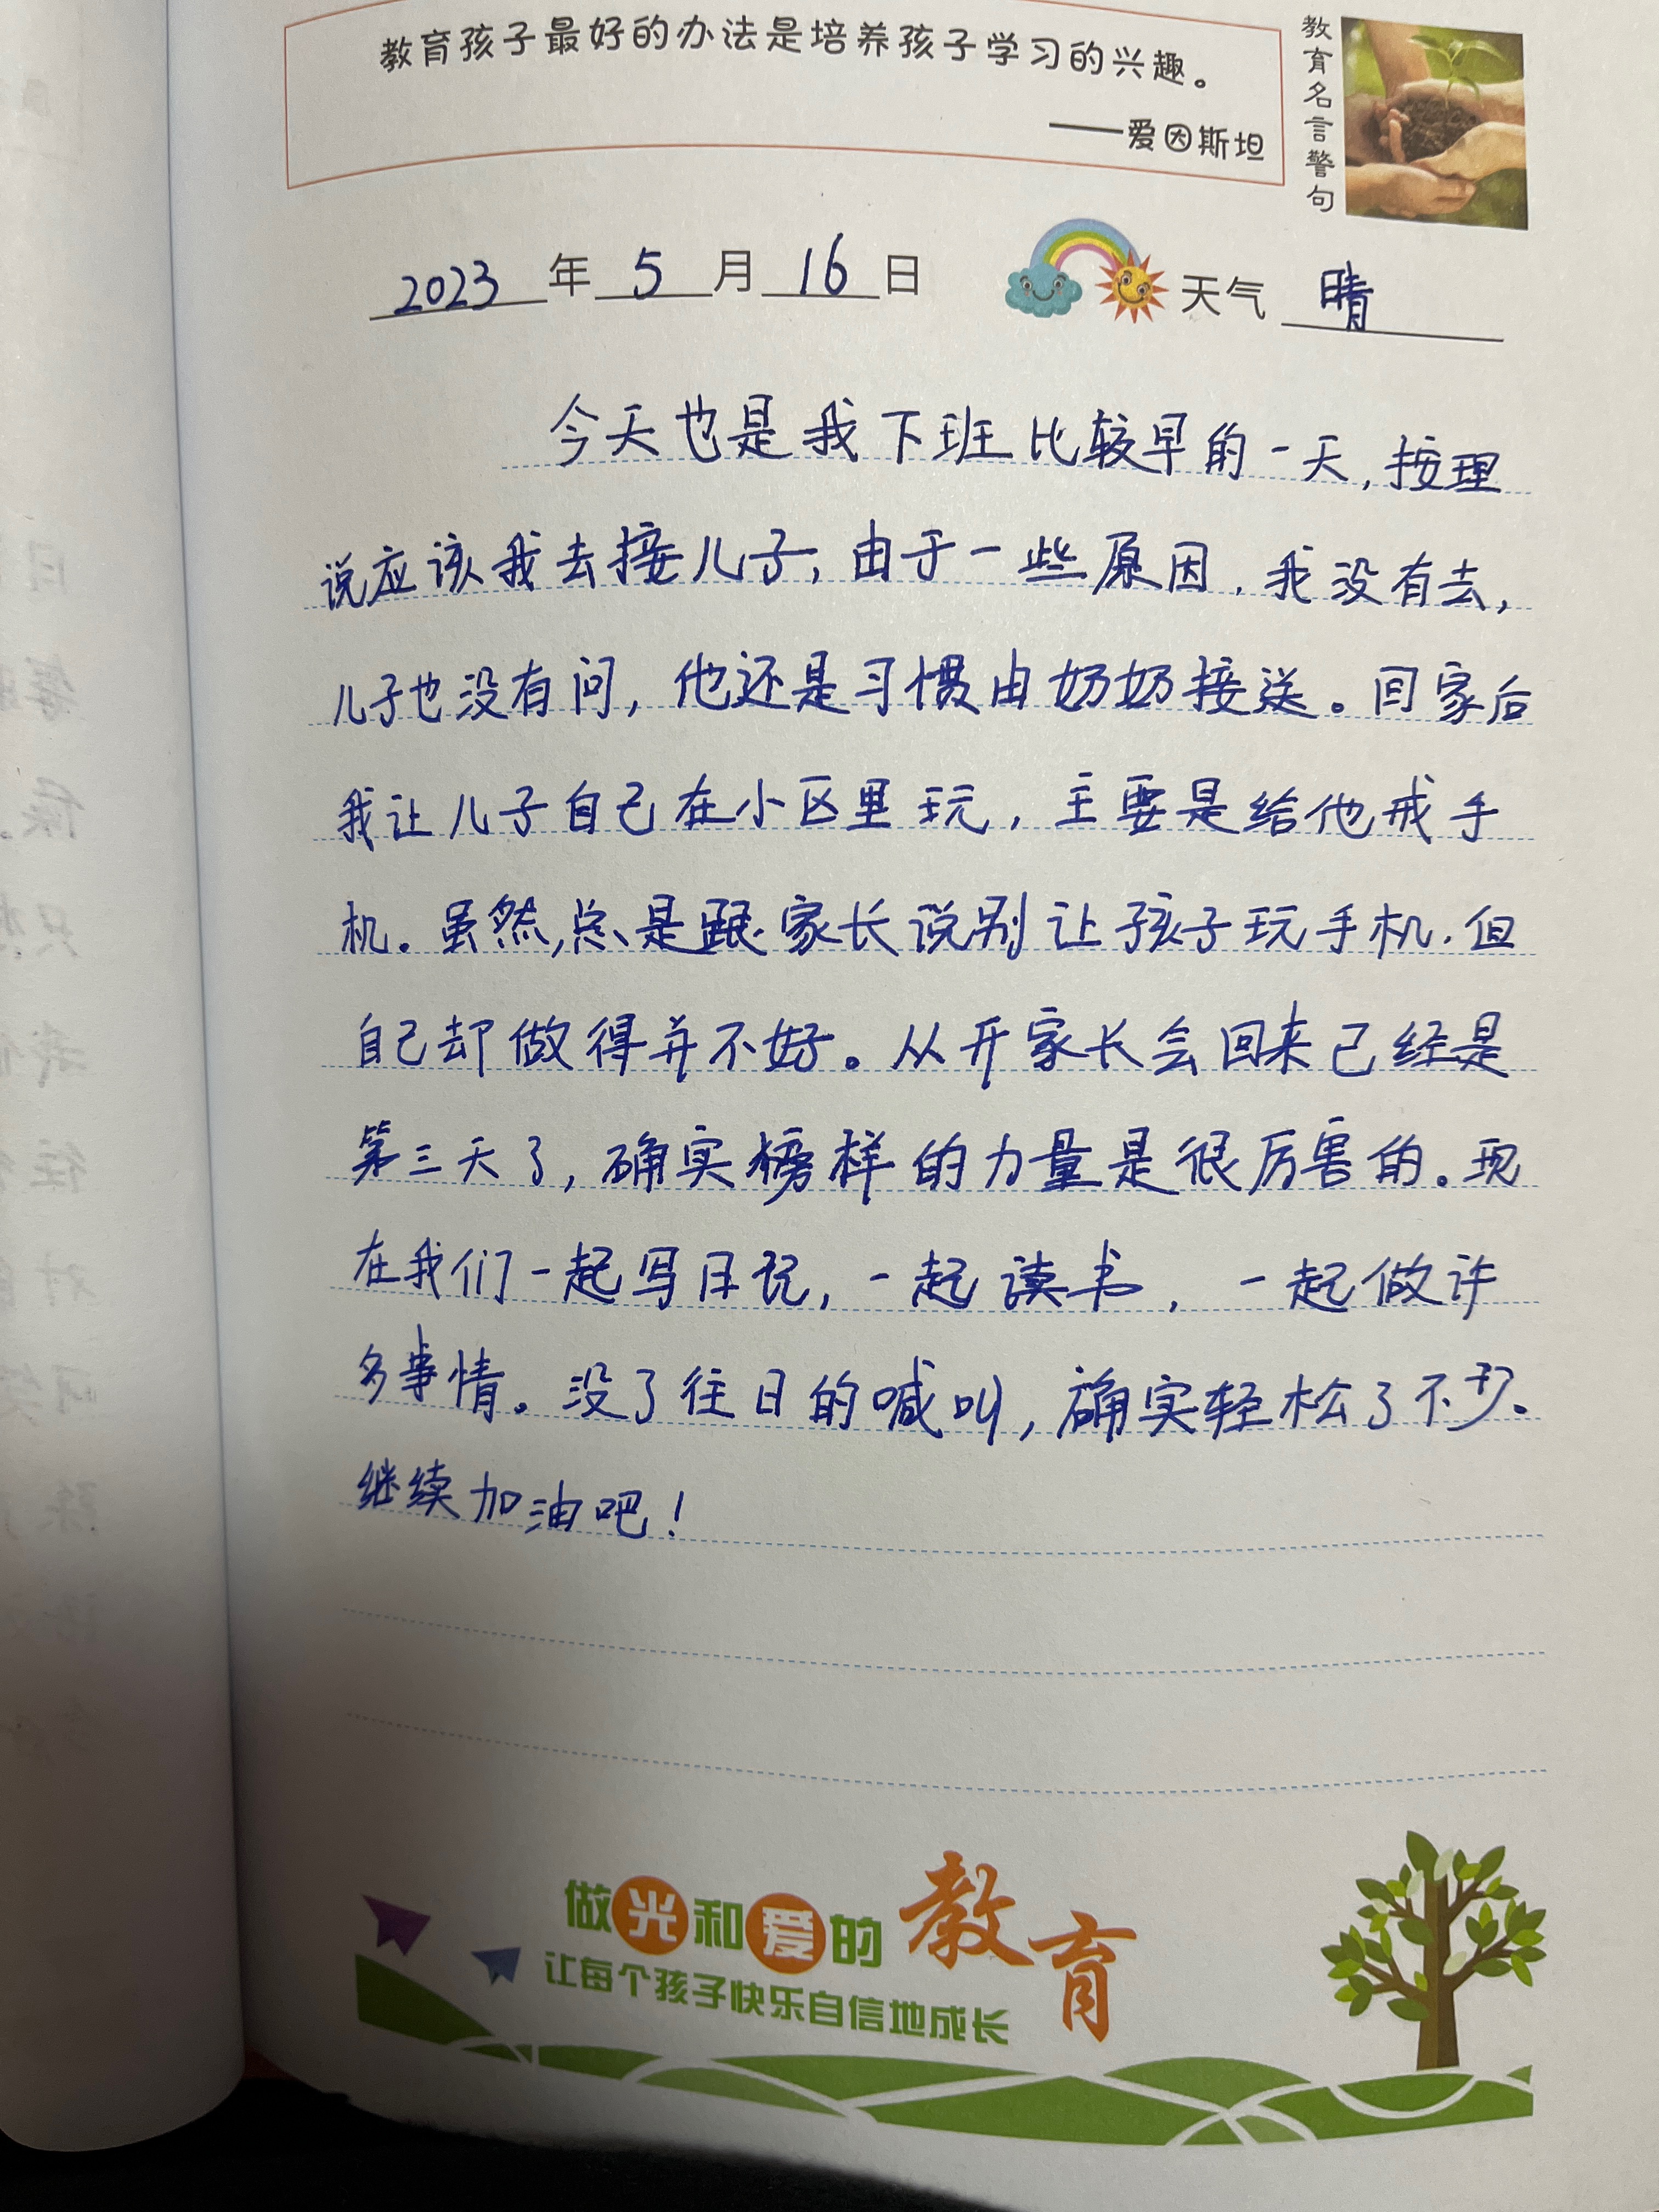 教育孩子最好的办法是培养孩子学习的兴趣。
——爱因斯坦
教育名言警句
2023年5月16日 天气 晴
今天也是我下班比较早的一天,按理
说应该我去接儿子,由于一些原因,我没有去,
儿子也没有问,他还是习惯由奶奶接送。回家后
我让儿子自己在小区里玩,主要是给他戒手
机。虽然,总是跟家长说别让孩子玩手机.但
自己却做得并不好。从开家长会回来已经是
第三天了,确实榜样的力量是很厉害的。现
在我们一起写日记,一起读书,一起做许
多事情。没了往日的喊叫,确实轻松了不少。
继续加油吧!
做光和爱的教育
让每个孩子快乐自信地成长